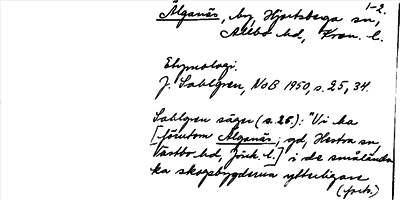 1-2.
Älganäs, by, Hjortsberga sn,
Allbo hd, Kron. l.
Etymologi.
J. Sahlgren, NoB 1950, s. 25, 34.
Sahlgren säger (s. 25.): "Vi ha
[förutom Älganäs, gd, Hestra sn,
Västbo hd, Jönk. l.] i de småländs-
ka skogsbygderna ytterligare
(forts.)